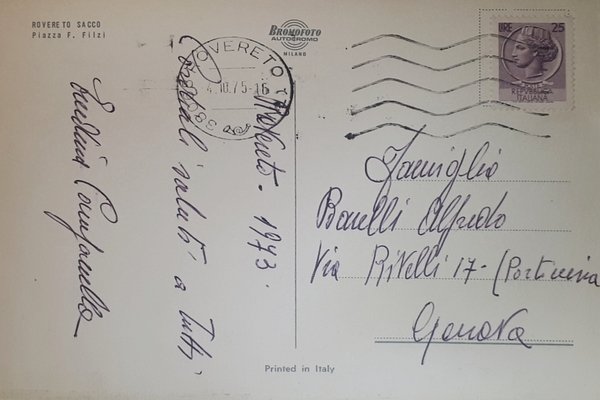 ROVERETO SACCO
Piazza F. Filzi
BROMOFOTO
AUTOCROMO
MILANO
ROVERETO
10.75-16
LIRE 25
POSTE
REPUBBLICA
ITALIANA
Rovereto - 1973.
Cordiali saluti a Tutti
Campanella
Famiglia
Bonelli Alfredo
Via Rivelli 17- (Portineria
Genova
Printed in Italy